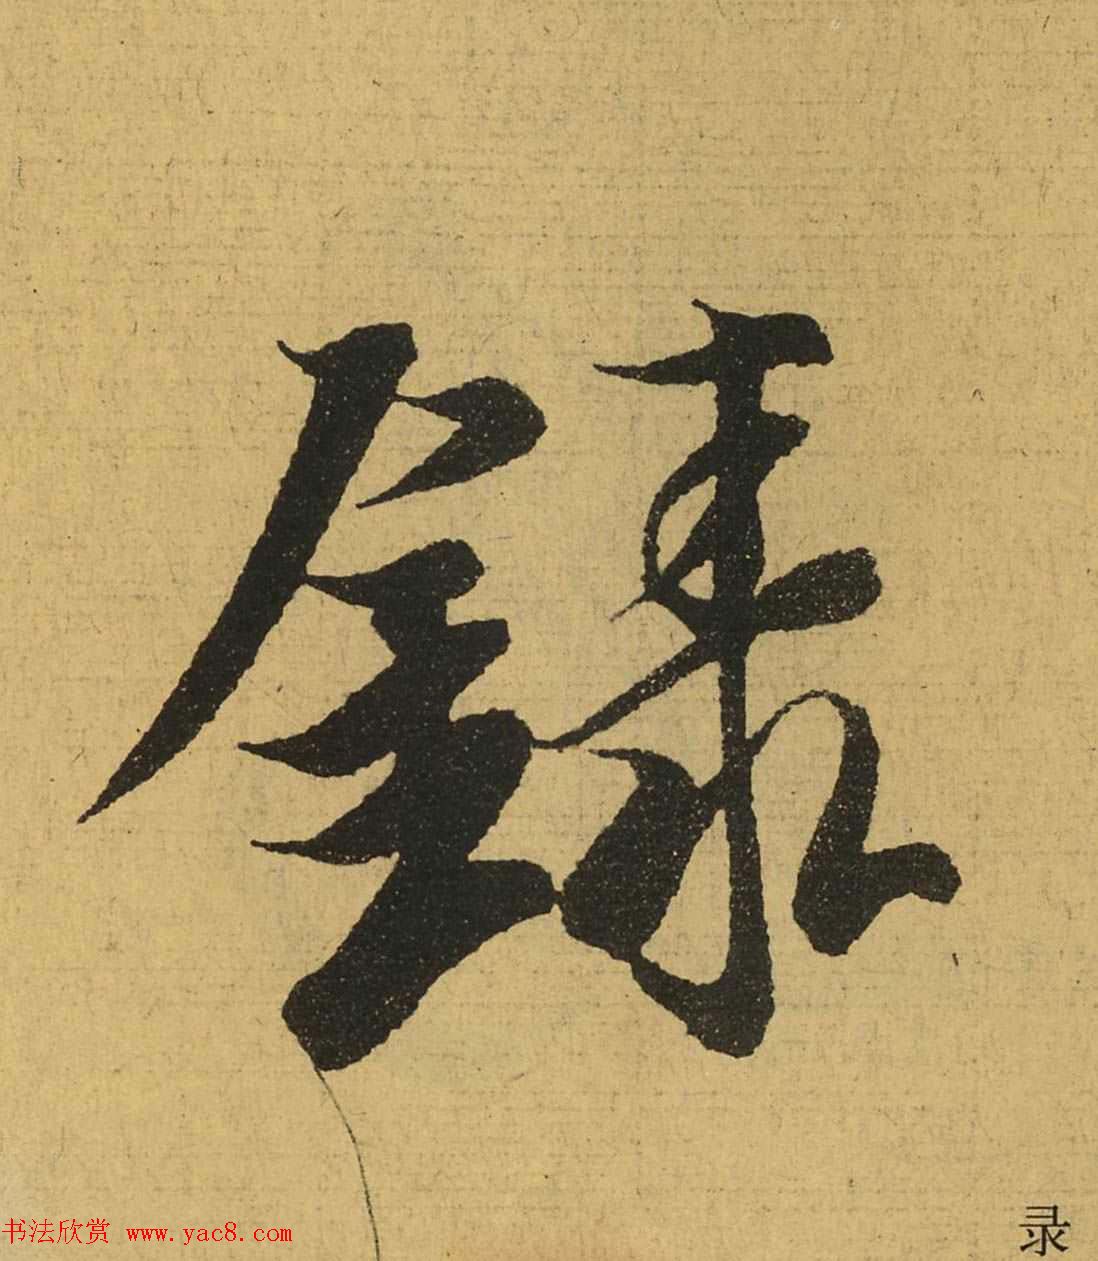 錄
书法欣赏 www.yac8.com
录